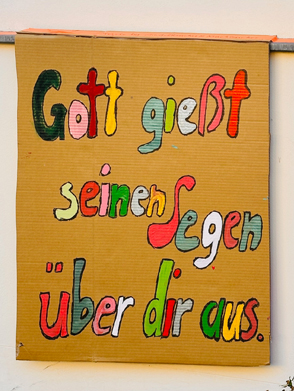 Gott gießt
seinen Segen
über dir aus.